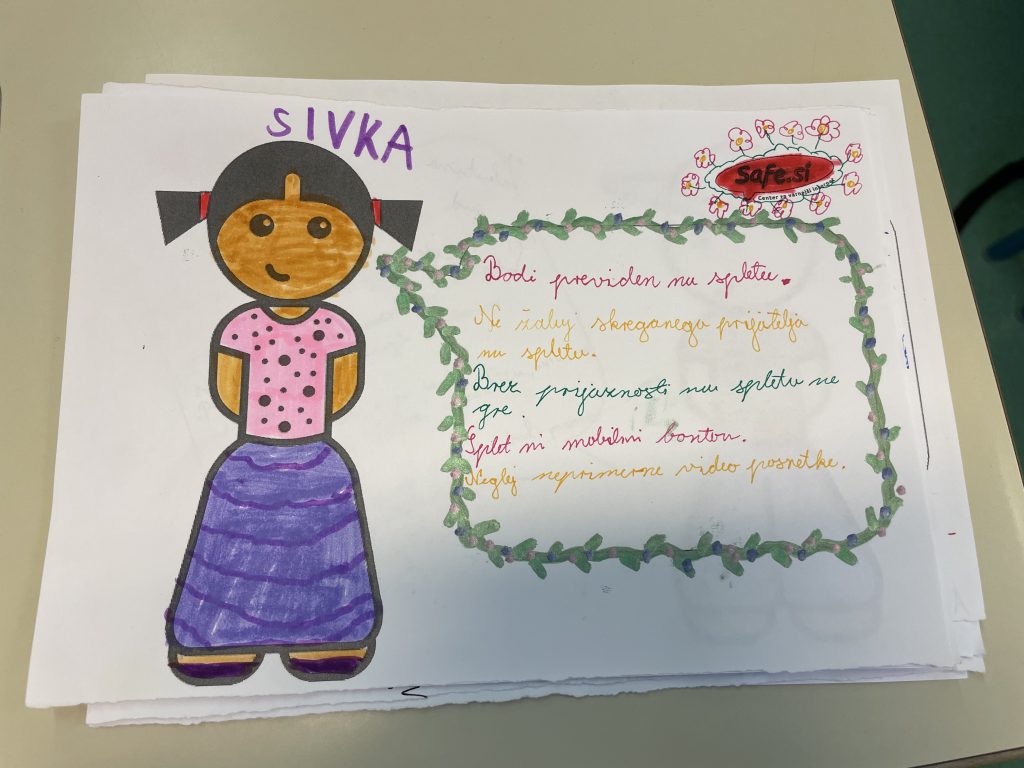 SIVKA
safe.si
Center za varnejši internet
Bodi previden na spletu.
Ne žaluj skreganega prijatelja
na spletu.
Brez prijaznosti na spletu ne
gre.
Splet ni mobilni bonton.
Neglej neprimerne video posnetke.